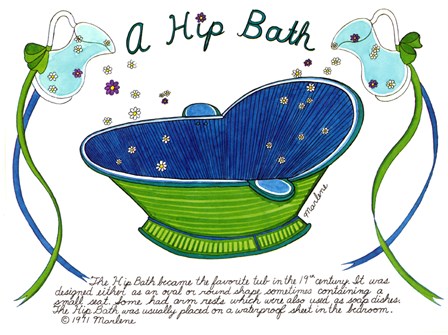 A Hip Bath
Marlene
The Hip Bath became the favorite tub in the 19th century. It was
designed either as an oval or round shape, sometimes containing a
small seat. Some had arm rests which were also used as soap dishes.
The Hip Bath was usually placed on a waterproof sheet in the bedroom.
© 1971 Marlene